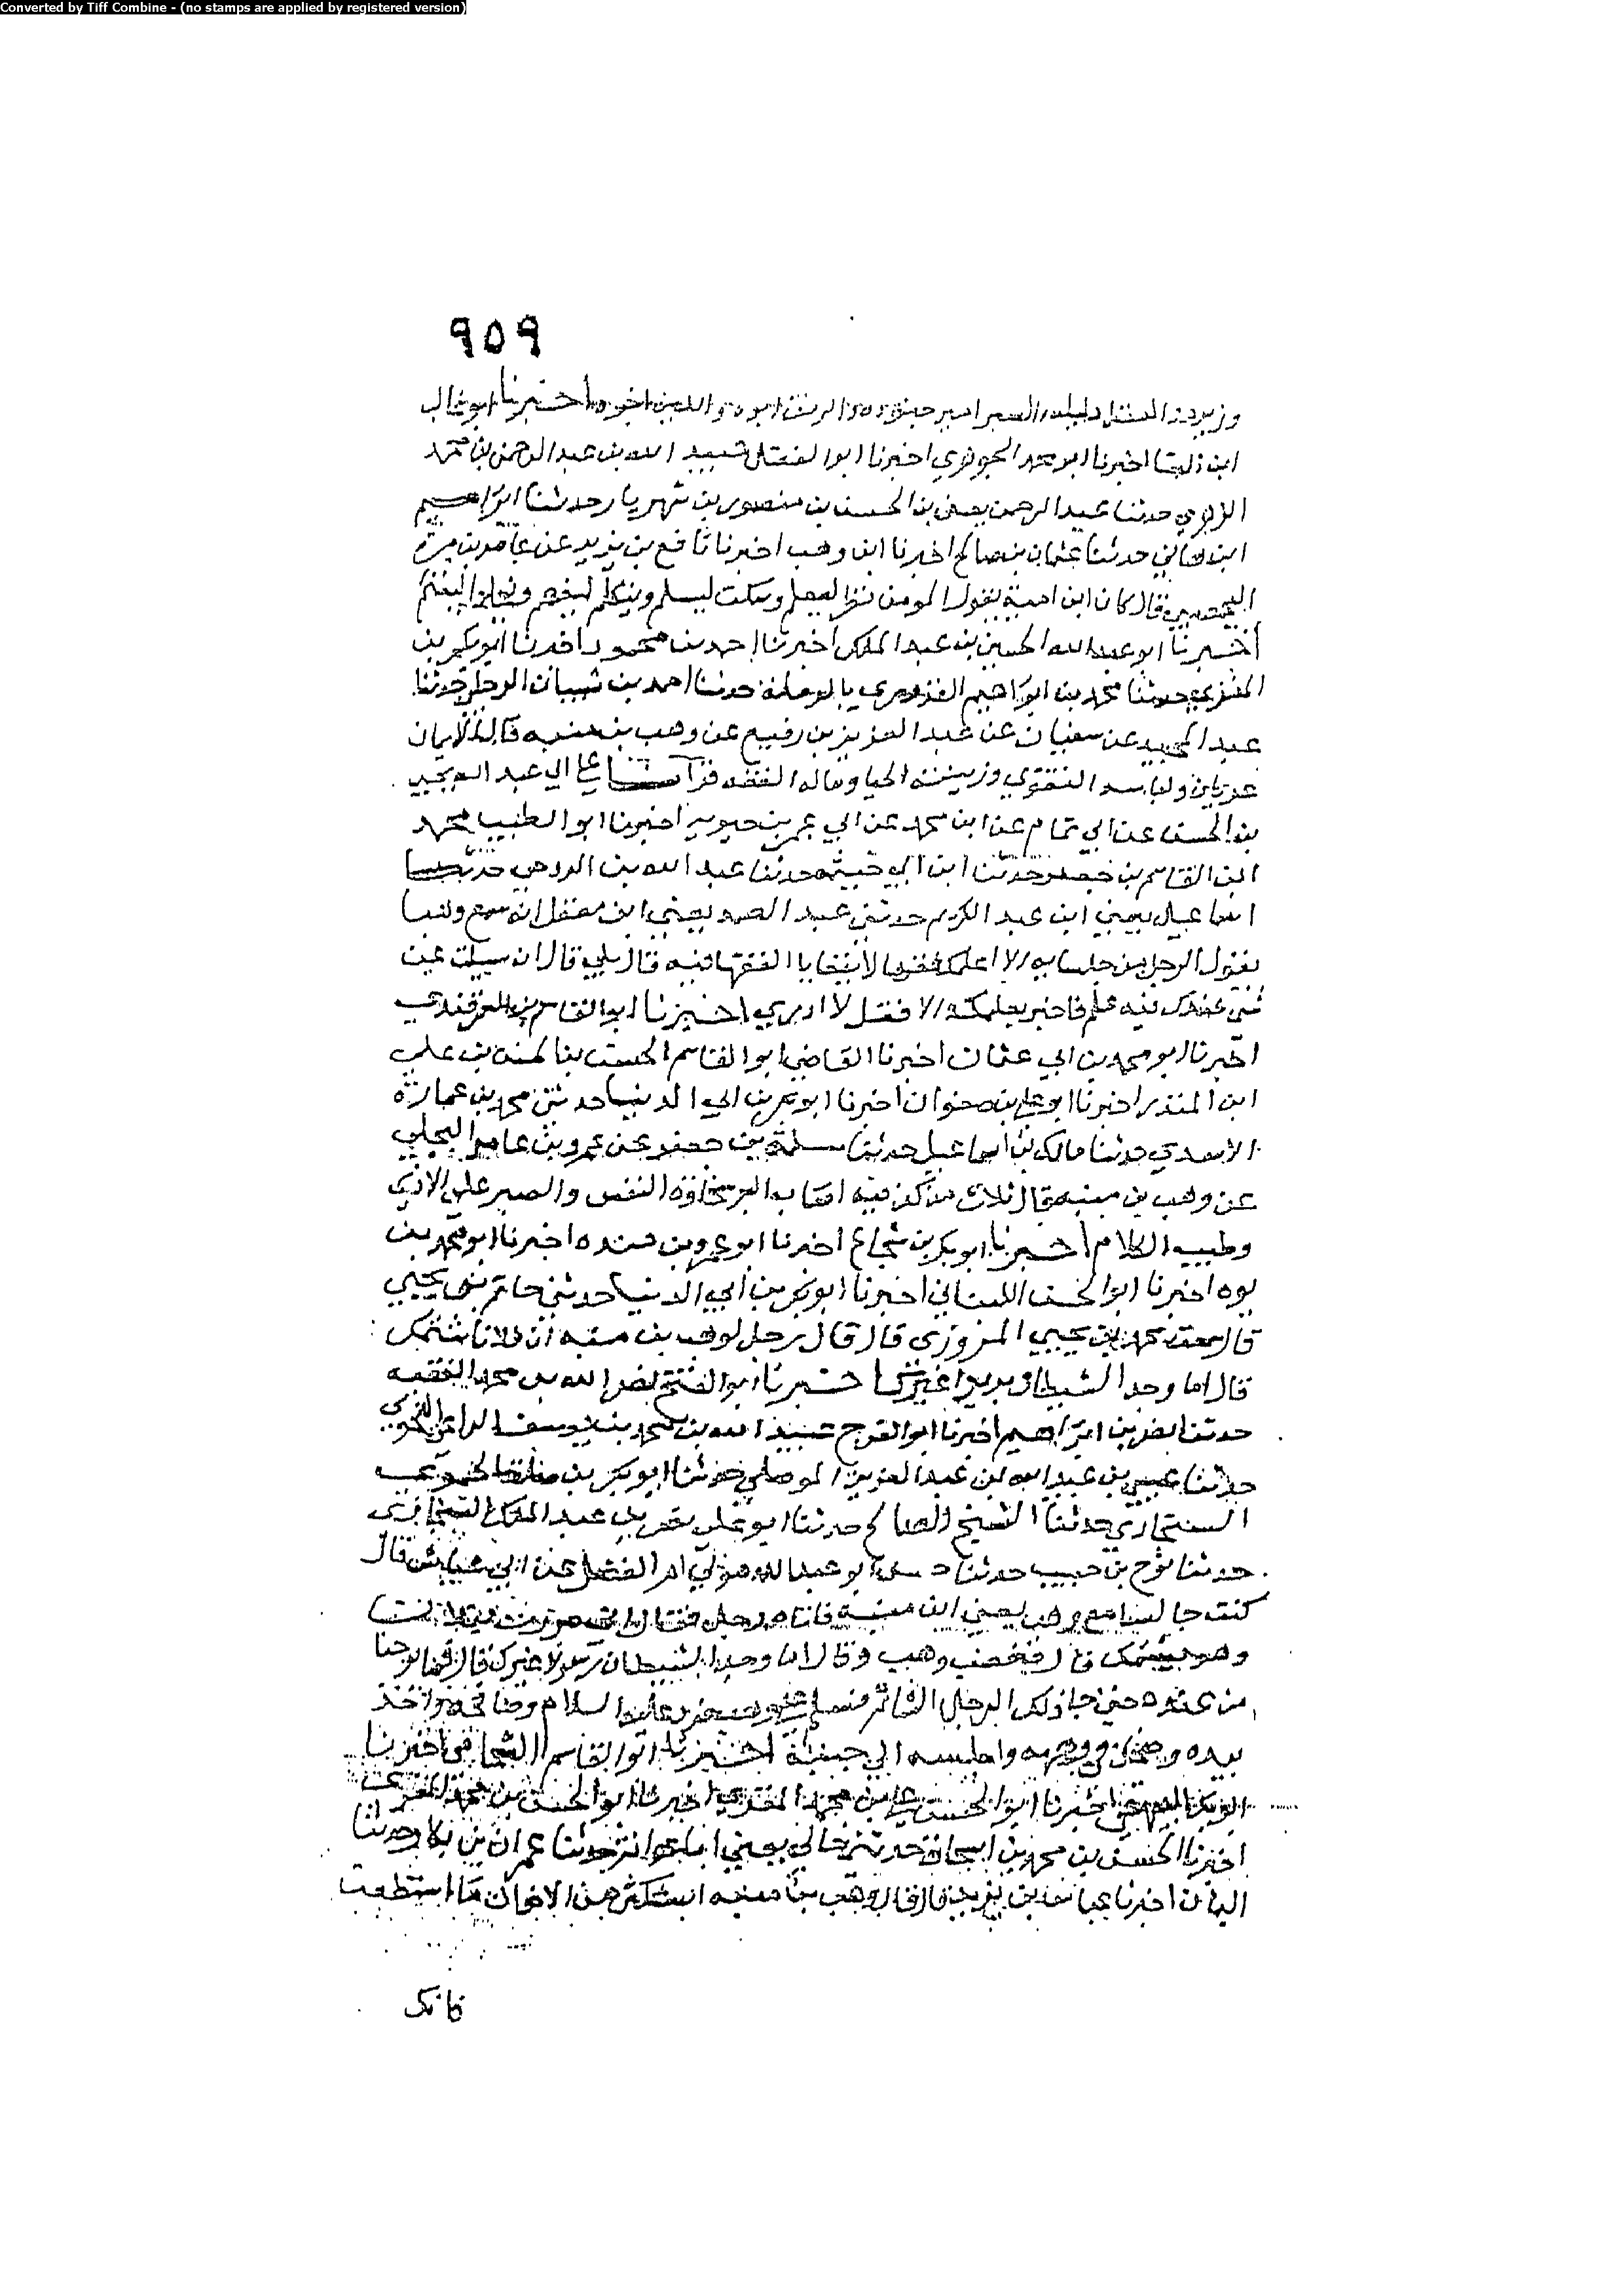 Converted by Tiff Combine - (no stamps are applied by registered version)
٩٥٩
وزيره العقل دليله الصبر امير جنوده الرفق ابوه اللين اخوه اخبرنا ابو غالب
ابن البنا اخبرنا ابو محمد الجوهري اخبرنا ابو الفضل عبيد الله بن عبد الرحمن بن محمد
الزهري حدثنا عبد الرحمن يعني بن الحسن بن منصور بن شهريار حدثنا ابراهيم
ابن هاني حدثنا عثمان بن صالح اخبرنا ابن وهب اخبرنا نافع بن يزيد عن عامر بن مرة
اليحصبي قال كان ابن امية يقول المومن ينظر ليعلم وسكت ليسلم ويتكلم ليفهم ويخلوا ليغنم
أخبرنا ابو عبد الله الحسين بن عبد الملك اخبرنا احمد بن محمود اخبرنا ابو بكر بن
المقري حدثنا محمد بن ابراهيم بالرملة حدثنا احمد بن شيبان الرملي حدثنا
عبد المجيد عن سفيان عن عبد العزيز بن رفيع عن وهب بن منبه قال الايمان
عريان ولباسه التقوي وزينته الحيا وماله الفقه قرآت علي ابي عبد الله يحيي
بن الحسن عن ابي تمام عن ابن محمد عن ابي عمر بن حيويه اخبرنا ابو الطيب محمد
ابن القاسم بن جعفر حدثنا ابن ابي خيثمة حدثنا عبد الله بن الرومي حدثنا
اسماعيل يعني ابن عبد الكريم حدثني عبد الصمد يعني ابن معقل انه سمع وهبا
يقول لرجل من جلسايه الا اعلمك لا يتغايا الفقها فيه قال بلي قال ان سيلت عن
شي عندك فيه علم فاخبر بعلمك والا فقل لا ادري اخبرنا ابو القاسم بن السمرقندي
اخبرنا ابو محمد بن ابي عثمان اخبرنا القاضي ابو القاسم الحسن بن الحسن بن علي
ابن المنذر اخبرنا ابو علي بن صفوان اخبرنا ابو بكر بن ابي الدنيا حدثني محمد بن عمارة
الاسدي حدثنا مالك بن اسماعيل حدثنا سلمة بن جعفر عن عمرو بن عامر البجلي
عن وهب بن منبه قال ثلاث من كن فيه اصاب البر سخاوة النفس والصبر علي الاذي
وطيب الكلام اخبرنا ابو بكر بن شجاع اخبرنا ابو عمرو بن منده اخبرنا ابو محمد بن
يوه اخبرنا ابو الحسن اللبناني اخبرنا ابو بكر بن ابي الدنيا حدثني حاتم بن يحيي
قال سمعت محمد بن يحيي المروزي قال قال رجل لوهب بن منبه ان فلانا شتمك
قال اما وجد الشيطان بريدا غيرك اخبرنا ابو الفتح نصر الله بن محمد الفقيه
حدثنا نصر بن ابراهيم اخبرنا ابو الفرج عبيد الله بن محمد بن يوسف النحوي
حدثنا عيسي بن عبيد الله بن عبد العزيز الموصلي حدثنا ابو بكر بن
السنجاري حدثنا الشيخ الصالح حدثنا ابو علي بن عبد الملك
حدثنا نوح بن حبيب حدثنا ابو عبد الله مولي ام الفضل عن ابي عياش قال
كنت جالسا مع وهب يعني ابن منبه فاتاه رجل فقال اني مررت بفلان
وهو يشتمك قال فغضب وهب وقال اما وجد الشيطان رسولا غيرك قال فما برحنا
من عنده حتي جا ذلك الرجل الشاتم فسلم علي وهب فرد عليه السلام وصافحه واخذ
بيده وضحك في وجهه واجلسه الي جنبه اخبرنا ابو القاسم الشحامي اخبرنا
ابو بكر البيهقي اخبرنا ابو الحسن علي بن محمد المقري اخبرنا ابو الحسن بن محمد
اخبرنا الحسن بن محمد بن اسحاق حدثني خالي يعني ابا عوانة حدثنا عمران بن بكار حدثنا
اخبرنا بن يزيد قال قال وهب بن منبه استكثر من الاخوان ما استطعت
فانك